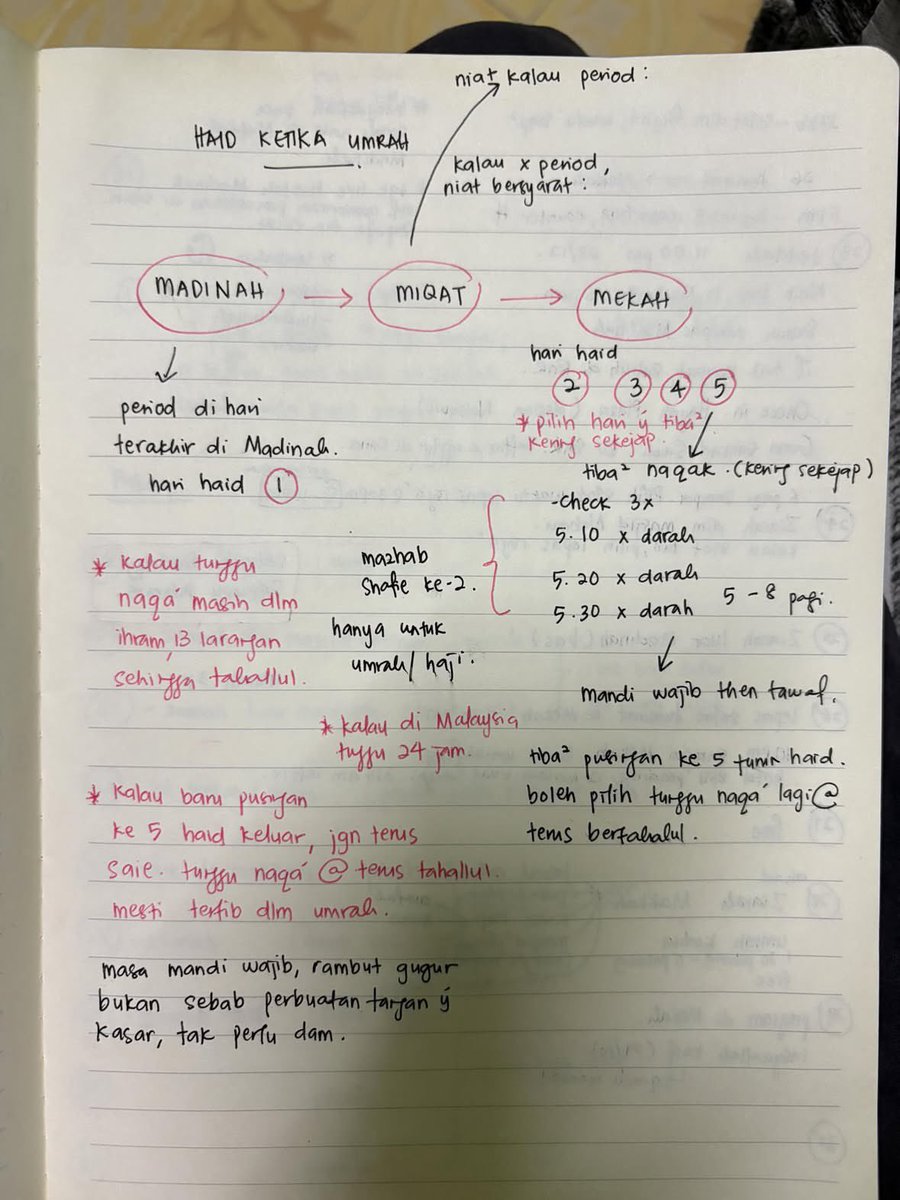 niat kalau period :
HAID KETIKA UMRAH
kalau x period,
niat bersyarat :
MADINAH → MIQAT → MEKAH
period di hari
terakhir di Madinah.
hari haid ①
hari haid
② ③ ④ ⑤
* pilih hari ý tiba²
kering sekejap.
tiba² naqak. (kering sekejap)
- check 3x
5.10 x darah
5.20 x darah
5.30 x darah
5 - 8 pagi.
mazhab
Shafie ke-2.
hanya untuk
umrah/haji.
mandi wajib then tawaf.
* kalau tunggu
naqa' masih dlm
ihram, 13 larangan
sehingga tahallul.
* kalau di Malaysia
tunggu 24 jam.
tiba² pusingan ke 5 turun hard.
boleh pilih tunggu naqa' lagi @
terus bertahalul.
* kalau baru pusingan
ke 5 haid keluar, jgn terus
saie. tunggu naqa' @ terus tahallul.
mesti tertib dlm umrah.
masa mandi wajib, rambut gugur
bukan sebab perbuatan tangan ý
kasar, tak perlu dam.